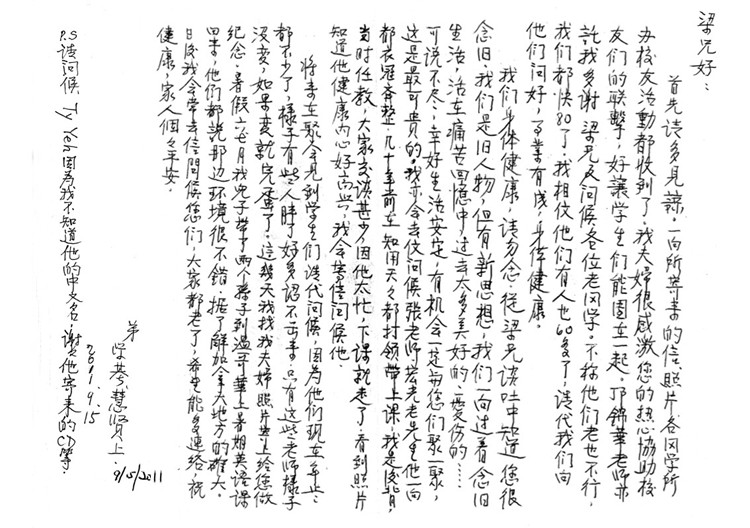 梁兄好：
首先请多見諒，一向所寄来的信、照片各同学所
办校友活動都收到了，我夫婦很感激您的热心協助校
友们的联繫，好讓学生们能團在一起。邝錦華老师亦
託我多谢 梁兄及问候各位老同学。不称他们老也不行，
我们都快80了，我相仪他们有人也60多了，请代我们向
他们问好，事業有成，身体健康。
我们身体健康，请勿念，從梁兄谈吐中知道您很
念旧，我们是旧人物，但有新思想，我们一向过着念旧
生活，活在痛苦回憶中，过去太多美好的、受伤的……
可说不尽，幸好生活安定，有机会一定与您们聚一聚，
这是最可貴的，我亦会去仪问候張老师，宏老老先生他一向
都衣冠斉整，几十年前在知用天々都打领带上課，我是後輩，
当时任教，大家交谈甚少，因他太忙，下課就走了，看到照片
知道他健康内心好高兴，我会苓信问候他。
将来在聚会見到学生们请代问候，因为他们现在年々
都不少了，樣子有些人胖了好多認不出来，只有这些老师樣子
没变，如果变就完蛋了。這幾天我找我夫婦照片寄上给您做
纪念，暑假六七月我兒子带了两个孫子到温可華上暑期英语課
里来，他们都说那边环境很不错，据了解加拿大地方的確大。
日後我会常去信問候您们，大家都老了，希望能多連络，祝
健康，家人個々平安。
弟
学苓慧贤上
2011.9.15
9/5/2011
P.S 请问候 Ty Yeh 因為我不知道他的中文名，謝々他寄来的CD等。